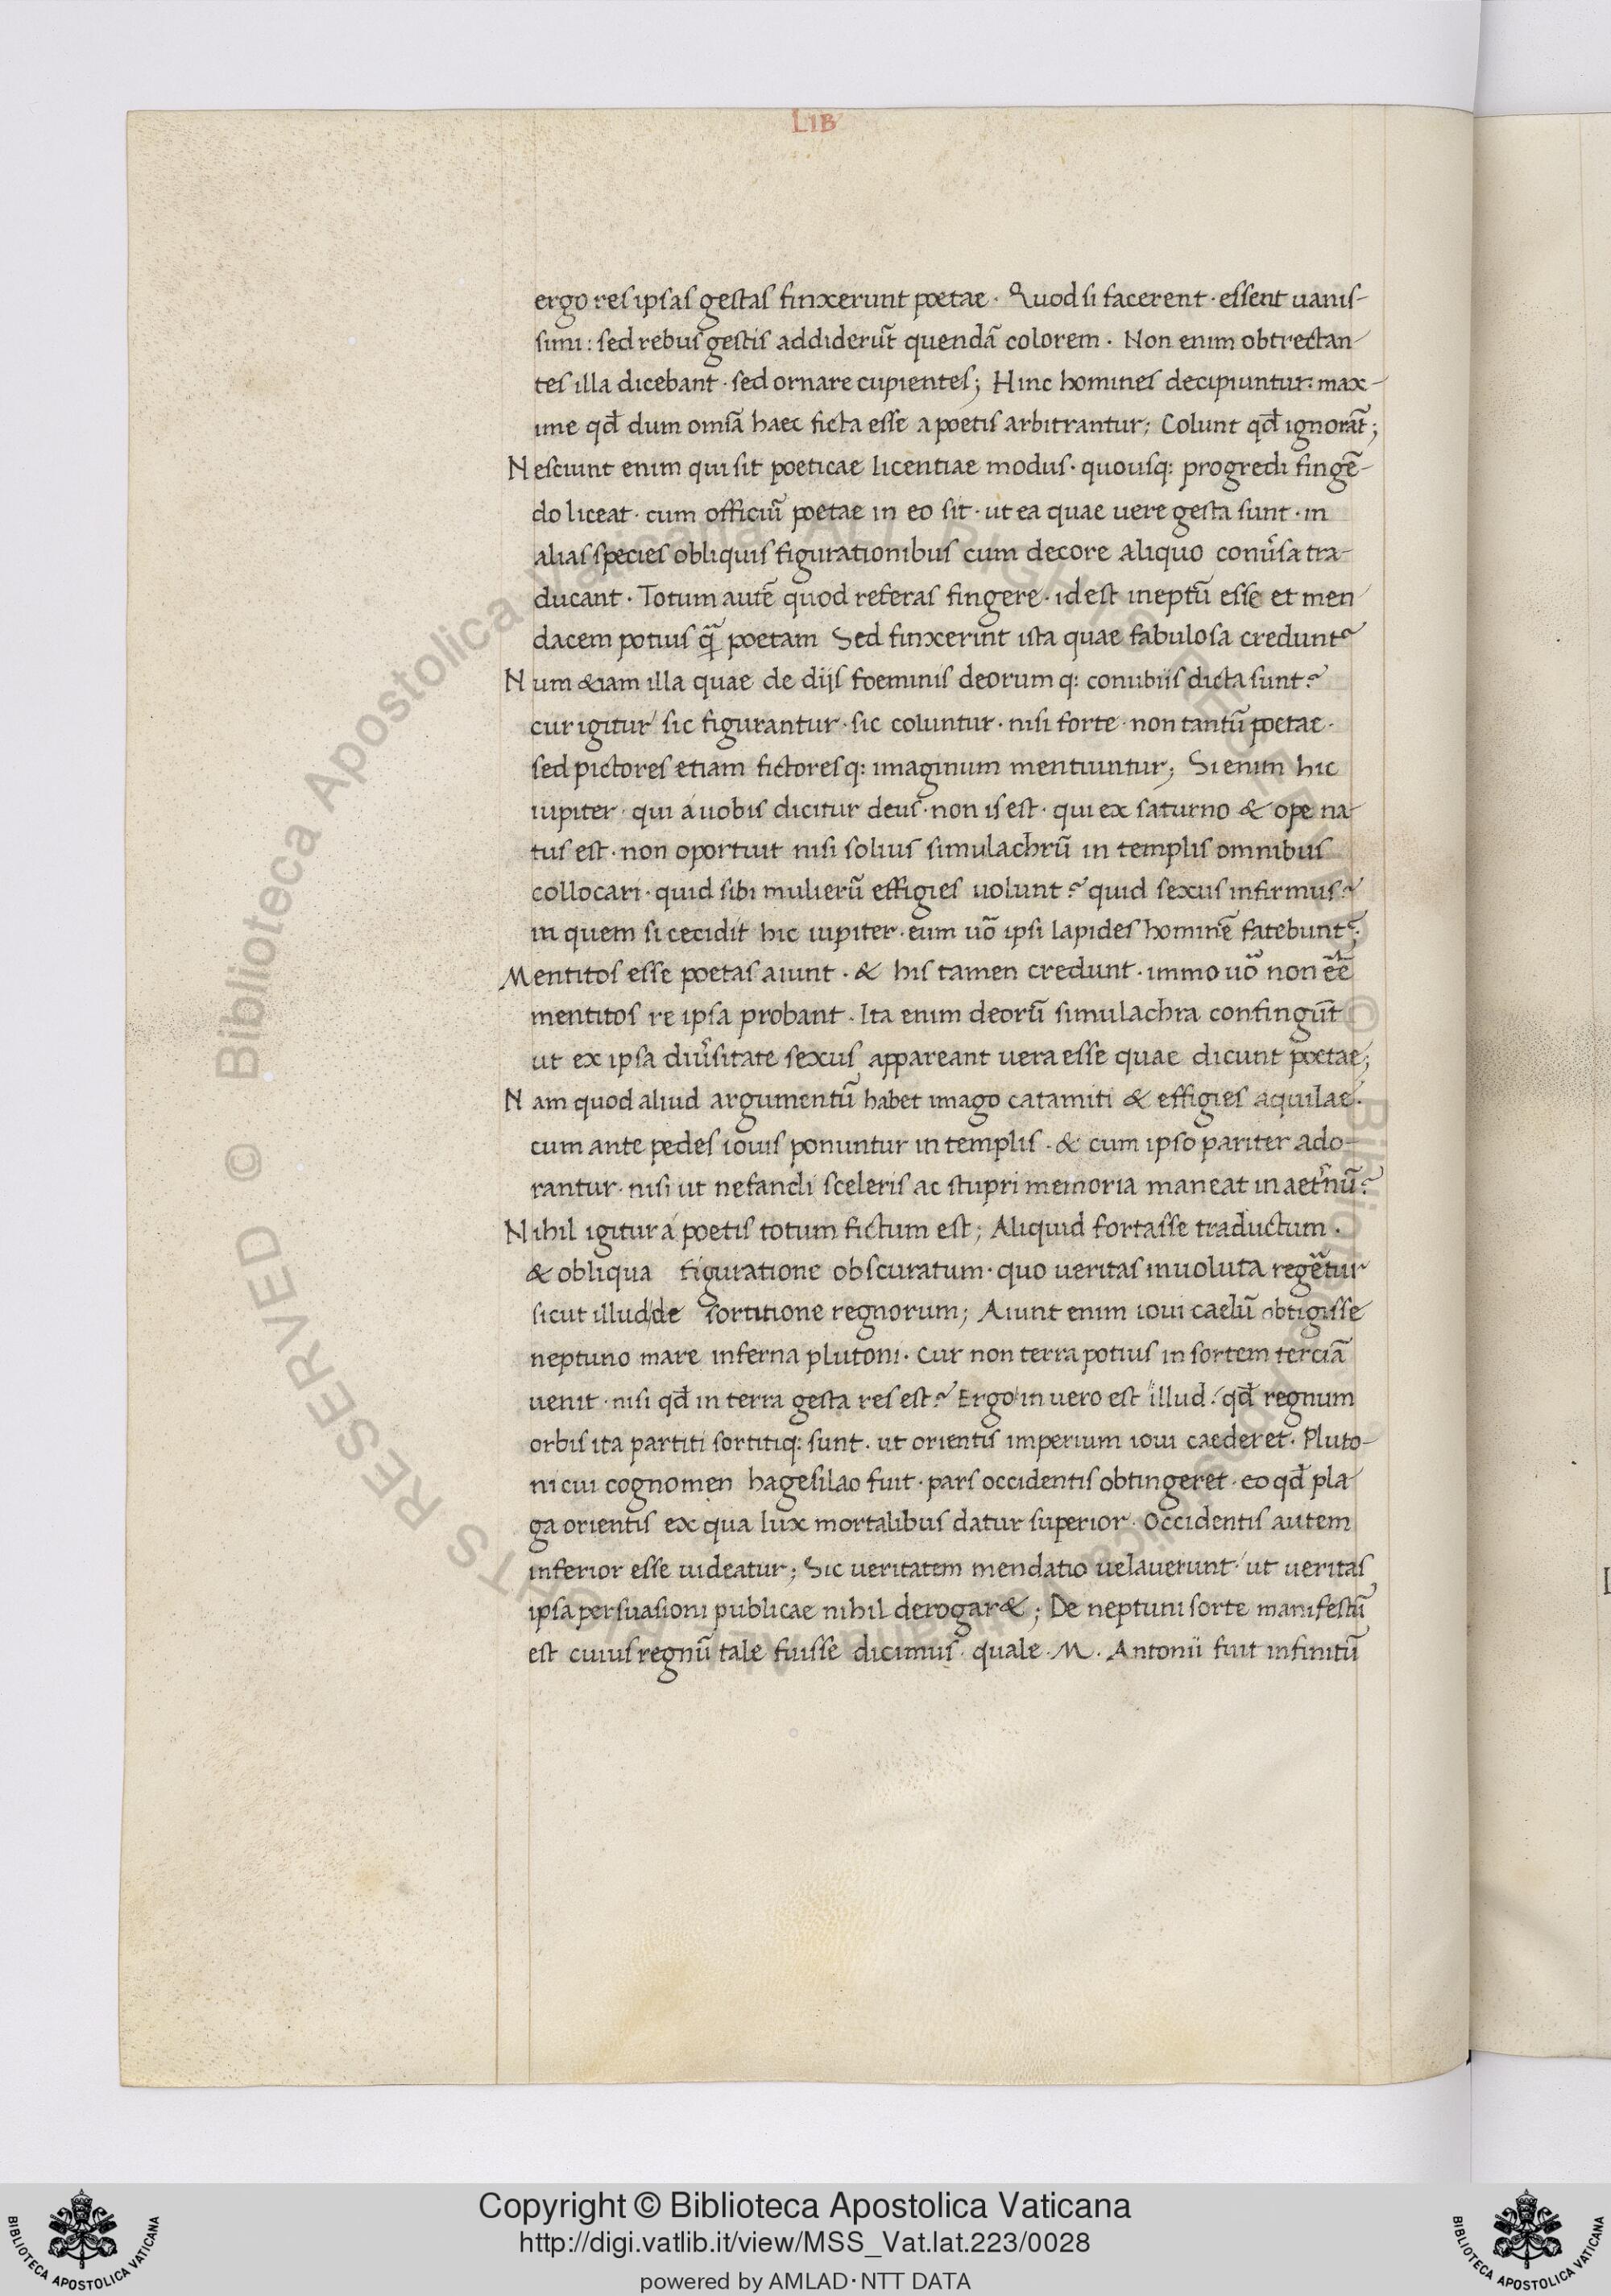 LIB
ergo res ipsas gestas finxerunt poetae · Quod si facerent · essent uanis-
simi : sed rebus gestis addiderūt quendā colorem · Non enim obtrectan-
tes illa dicebant · sed ornare cupientes; Hinc homines decipiuntur: max-
ime qđ dum omīa haec ficta esse a poetis arbitrantur; Colunt qđ ignorāt;
Nesciunt enim qui sit poeticae licentiae modus · quousq: progredi fingē-
do liceat · cum officiū poetae in eo sit · ut ea quae uere gesta sunt · in
alias species obliquis figurationibus cum decore aliquo conūsa tra-
ducant · Totum autē quod referas fingere · id est ineptū esse et men-
dacem potius q̄ poetam Sed finxerint ista quae fabulosa credunt᷑
Num &iam illa quae de dijs foeminis deorum q: conubiis dicta sunt?
cur igitur sic figurantur · sic coluntur · nisi forte · non tantū poetae ·
sed pictores etiam fictoresq: imaginum mentiuntur; Si enim hic
iupiter · qui á uobis dicitur deus · non is est · qui ex saturno & ope na-
tus est · non oportuit nisi solius simulachrū in templis omnibus
collocari · quid sibi mulierū effigies uolunt? quid sexus infirmus?
in quem si cecidit hic iupiter · eum uō ipsi lapides hominē fatebunt᷑.
Mentitos esse poetas aiunt · & his tamen credunt · immo uō non ēē
mentitos re ipsa probant · Ita enim deorū simulachra confingūt
ut ex ipsa diūsitate sexus appareant uera esse quae dicunt poetae;
Nam quod aliud argumentū habet imago catamiti & effigies aquilae ·
cum ante pedes iouis ponuntur in templis · & cum ipso pariter ado-
rantur · nisi ut nefandi sceleris ac stupri memoria maneat in aet̄nū?
Nihil igitur á poetis totum fictum est; Aliquid fortasse traductum ·
& obliqua figuratione obscuratum · quo ueritas inuoluta regēt̄ur
sicut illud/de sortitione regnorum; Aiunt enim ioui caelū obtigisse
neptuno mare inferna plutoni · Cur non terra potius in sortem terciā
uenit · nisi qđ in terra gesta res est? Ergo in vero est illud · qđ regnum
orbis ita partiti sortitiq: sunt · ut orientis imperium ioui caederet · Pluto-
ni cui cognomen hagesilao fuit · pars occidentis obtingeret · eo qđ pla-
ga orientis ex qua lux mortalibus datur superior · Occidentis autem
inferior esse uideatur; Sic ueritatem mendatio uelauerunt · ut ueritas
ipsa persuasioni publicae nihil derogar&; De neptuni sorte manifestū
est cuius regnū tale fuisse dicimus · quale · M · Antonii fuit infinitū
© Biblioteca Apostolica Vaticana ALL RIGHTS RESERVED
Copyright © Biblioteca Apostolica Vaticana
http://digi.vatlib.it/view/MSS_Vat.lat.223/0028
powered by AMLAD·NTT DATA
BIBLIOTECA APOSTOLICA VATICANA
BIBLIOTECA APOSTOLICA VATICANA